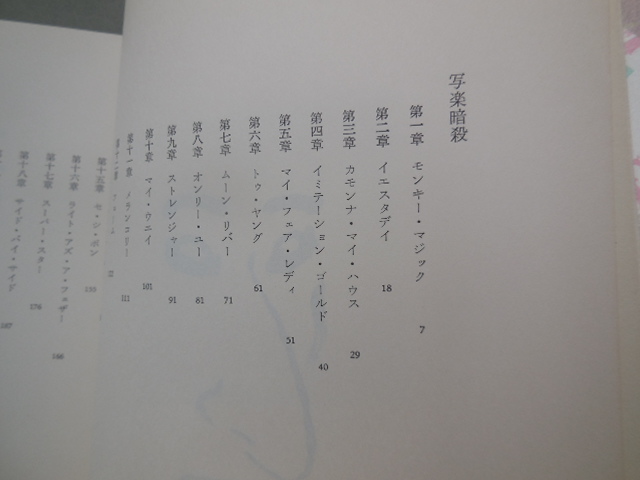 写楽暗殺
第一章 モンキー・マジック 7
第二章 イエスタデイ 18
第三章 カモンナ・マイ・ハウス 29
第四章 イミテーション・ゴールド 40
第五章 マイ・フェア・レディ 51
第六章 トゥ・ヤング 61
第七章 ムーン・リバー 71
第八章 オンリー・ユー 81
第九章 ストレンジャー 91
第十章 マイ・ウエイ 101
第十一章 メランコリー 111
第十五章 セ・シ・ボン
第十六章 ライト・アズ・ア・フェザー 166
第十七章 スーパー・スター 176
第十八章 サイド・バイ・サイド 187